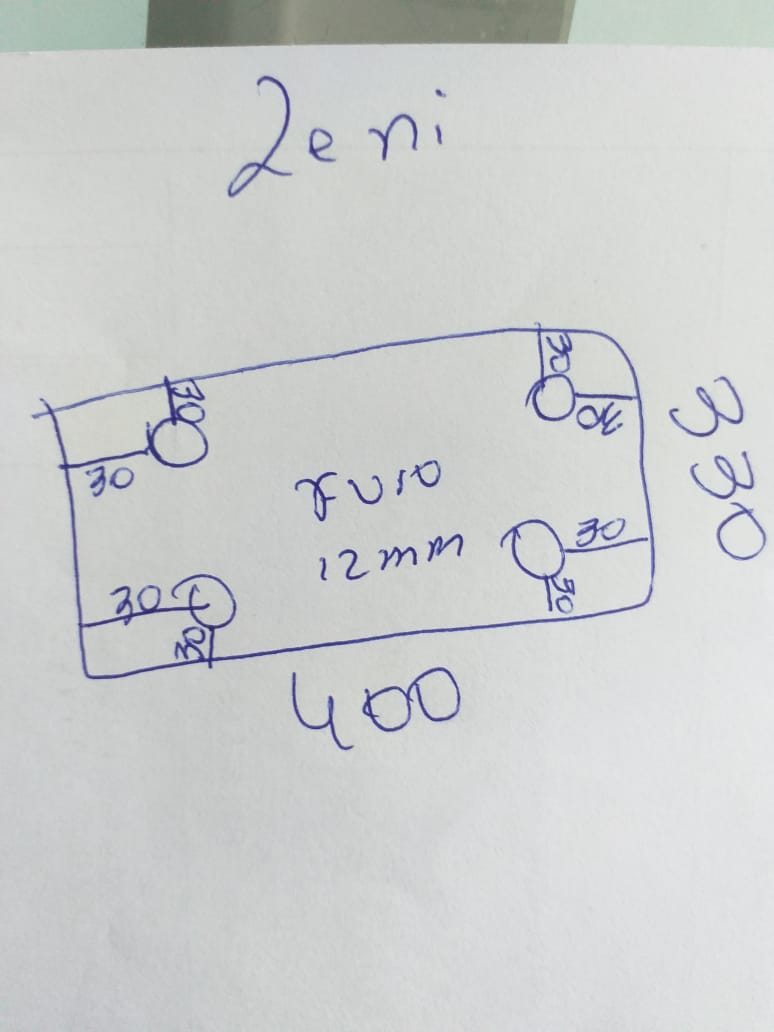 Zeni
30
30
30
30
330
furo
12mm
30
30
30
30
400